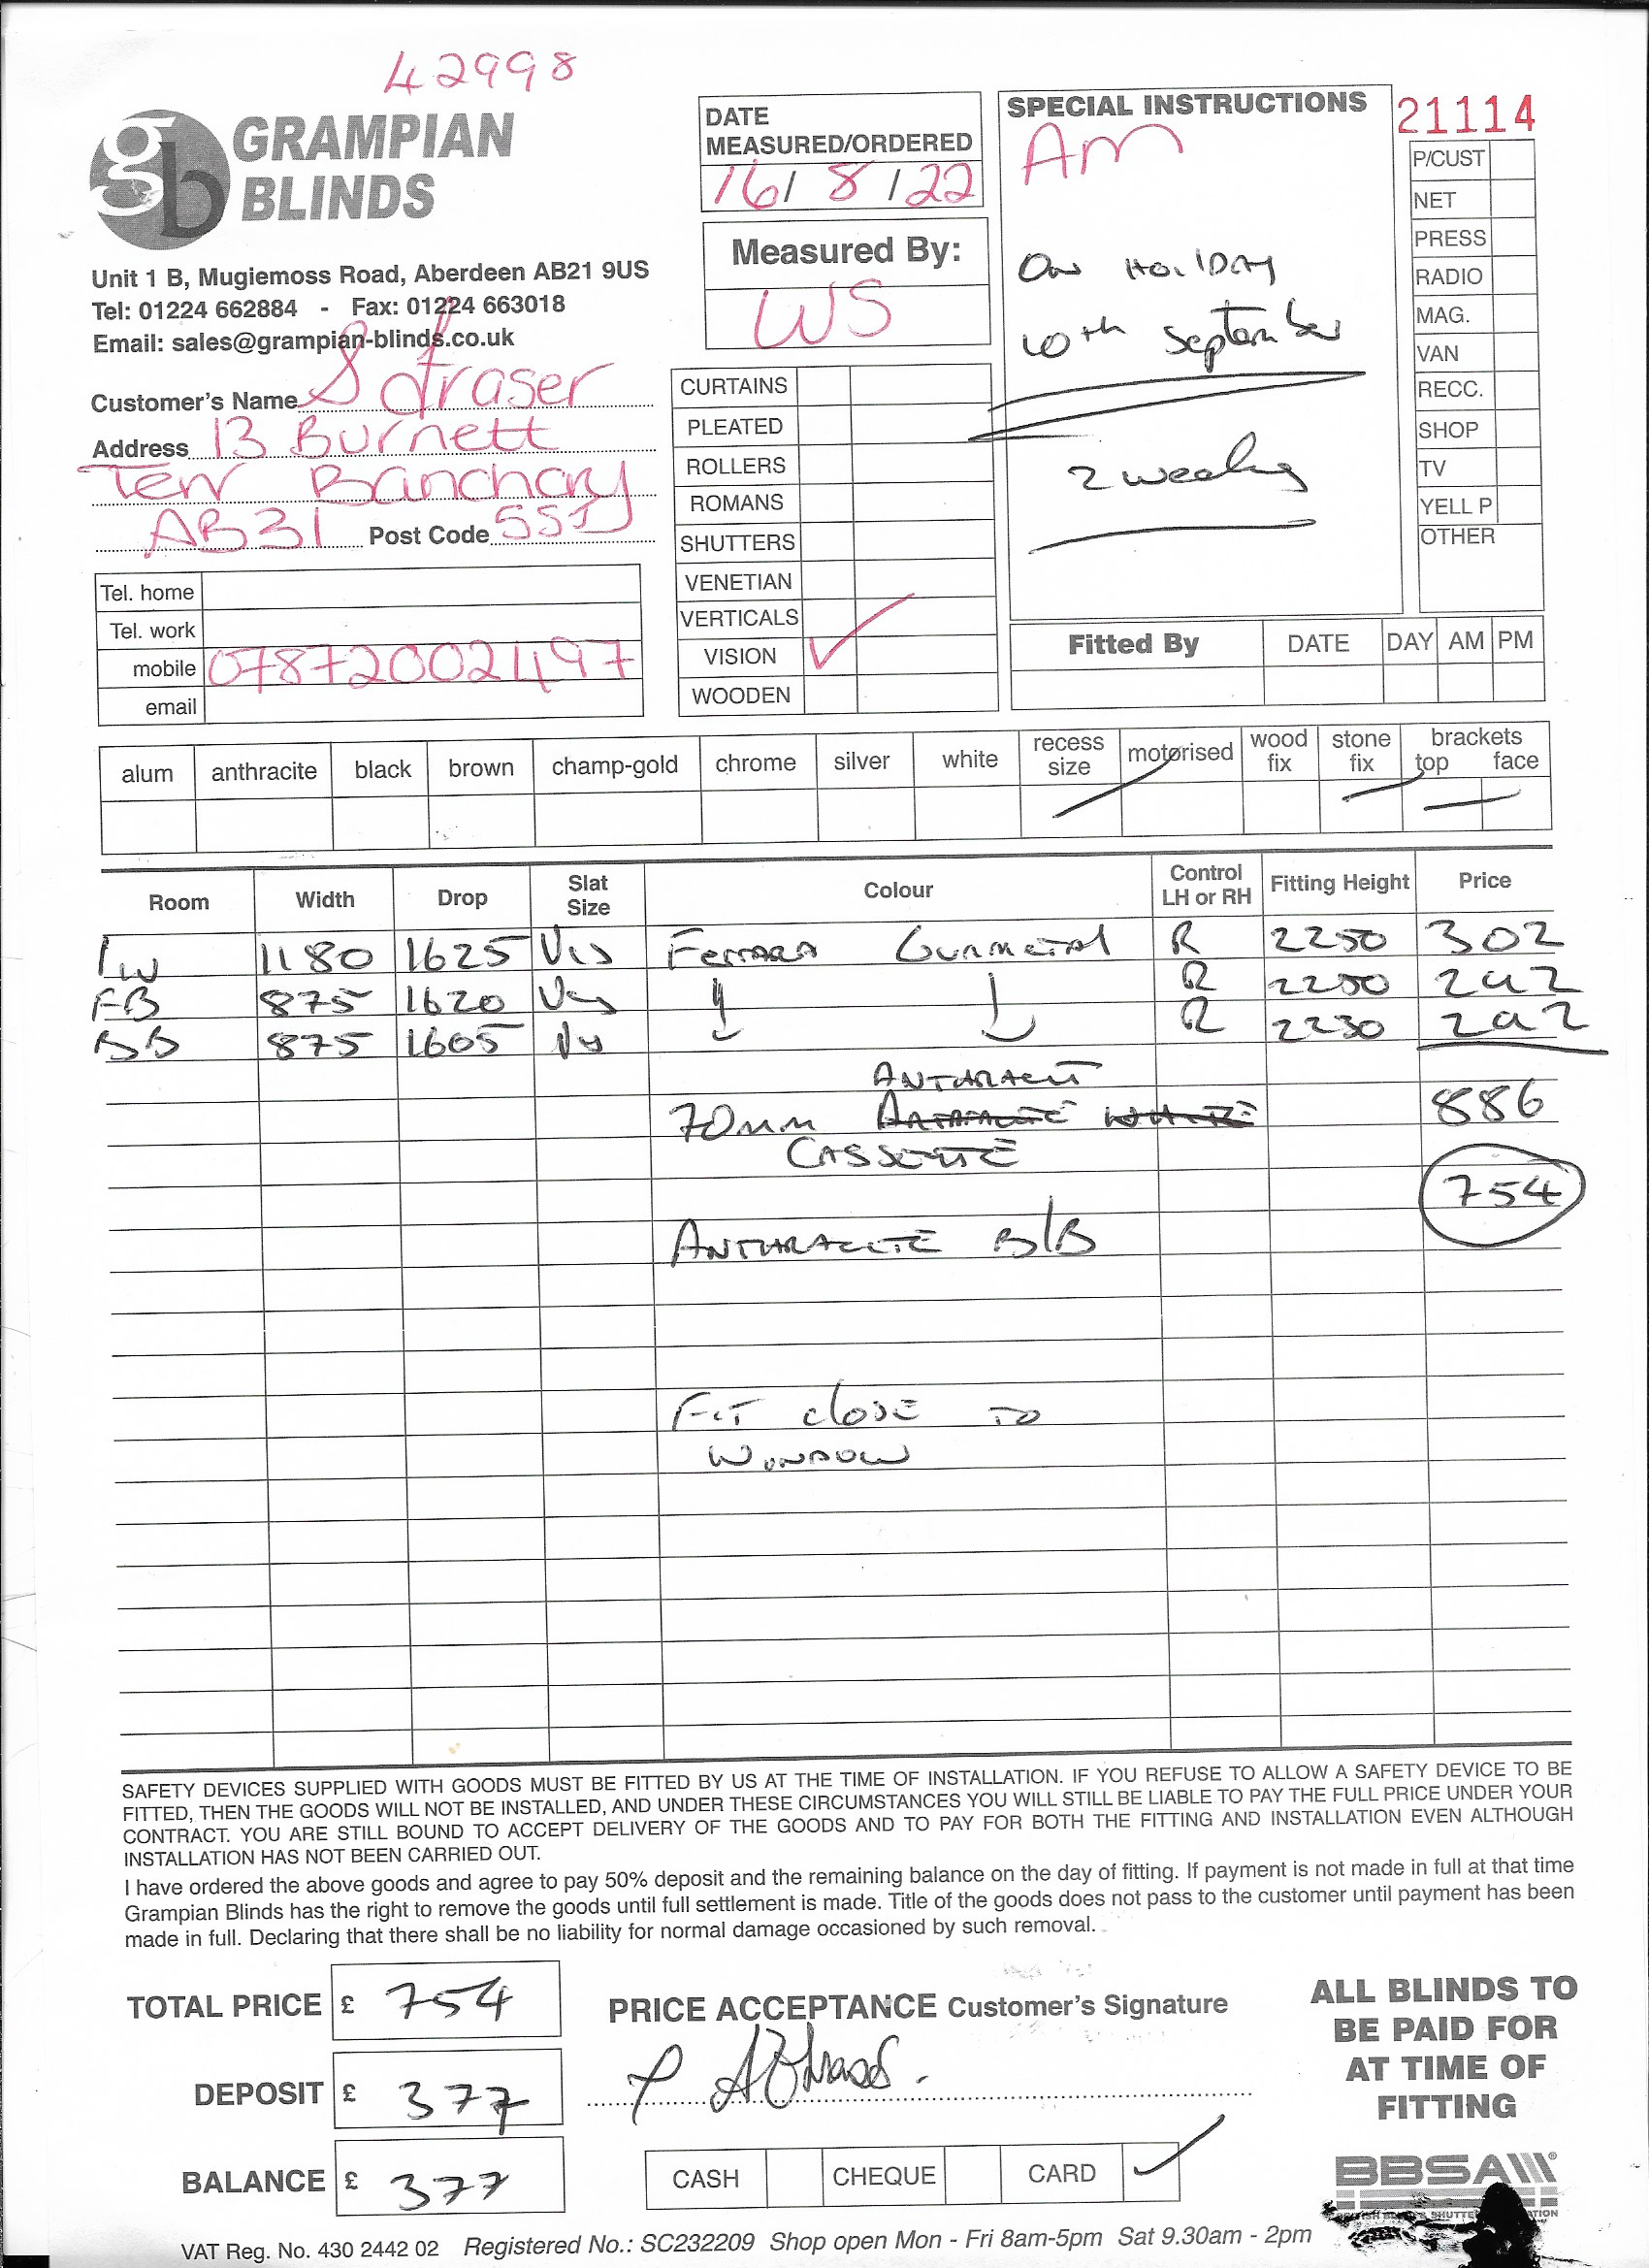 42998
GRAMPIAN
BLINDS
Unit 1 B, Mugiemoss Road, Aberdeen AB21 9US
Tel: 01224 662884 - Fax: 01224 663018
Email: sales@grampian-blinds.co.uk
Customer's Name S Fraser
Address 13 Burnett
Terr Banchory
AB31 Post Code 5SJ
Tel. home
Tel. work
mobile 07872002497
email
DATE
MEASURED/ORDERED
16/ 8 /22
Measured By:
WS
CURTAINS
PLEATED
ROLLERS
ROMANS
SHUTTERS
VENETIAN
VERTICALS
VISION ✓
WOODEN
SPECIAL INSTRUCTIONS
Am
On HoliDAy
10th September
2 weeks
21114
P/CUST
NET
PRESS
RADIO
MAG.
VAN
RECC.
SHOP
TV
YELL P
OTHER
Fitted By DATE DAY AM PM
alum anthracite black brown champ-gold chrome silver white recess size motorised wood fix stone fix brackets top face
Room Width Drop Slat Size Colour Control LH or RH Fitting Height Price
1180 1625 Vis Ferrara Gunmetal R 2250 302
FB 875 1620 Vis R 2250 292
BB 875 1605 Vis R 2230 292
ANTHRACITE
70mm 886
CASSETTE
754
ANTHRACITE B/B
FIT close TO
WINDOW
SAFETY DEVICES SUPPLIED WITH GOODS MUST BE FITTED BY US AT THE TIME OF INSTALLATION. IF YOU REFUSE TO ALLOW A SAFETY DEVICE TO BE
FITTED, THEN THE GOODS WILL NOT BE INSTALLED, AND UNDER THESE CIRCUMSTANCES YOU WILL STILL BE LIABLE TO PAY THE FULL PRICE UNDER YOUR
CONTRACT. YOU ARE STILL BOUND TO ACCEPT DELIVERY OF THE GOODS AND TO PAY FOR BOTH THE FITTING AND INSTALLATION EVEN ALTHOUGH
INSTALLATION HAS NOT BEEN CARRIED OUT.
I have ordered the above goods and agree to pay 50% deposit and the remaining balance on the day of fitting. If payment is not made in full at that time
Grampian Blinds has the right to remove the goods until full settlement is made. Title of the goods does not pass to the customer until payment has been
made in full. Declaring that there shall be no liability for normal damage occasioned by such removal.
TOTAL PRICE £ 754
DEPOSIT £ 377
BALANCE £ 377
PRICE ACCEPTANCE Customer's Signature
CASH CHEQUE CARD ✓
ALL BLINDS TO
BE PAID FOR
AT TIME OF
FITTING
BBSA
VAT Reg. No. 430 2442 02 Registered No.: SC232209 Shop open Mon - Fri 8am-5pm Sat 9.30am - 2pm